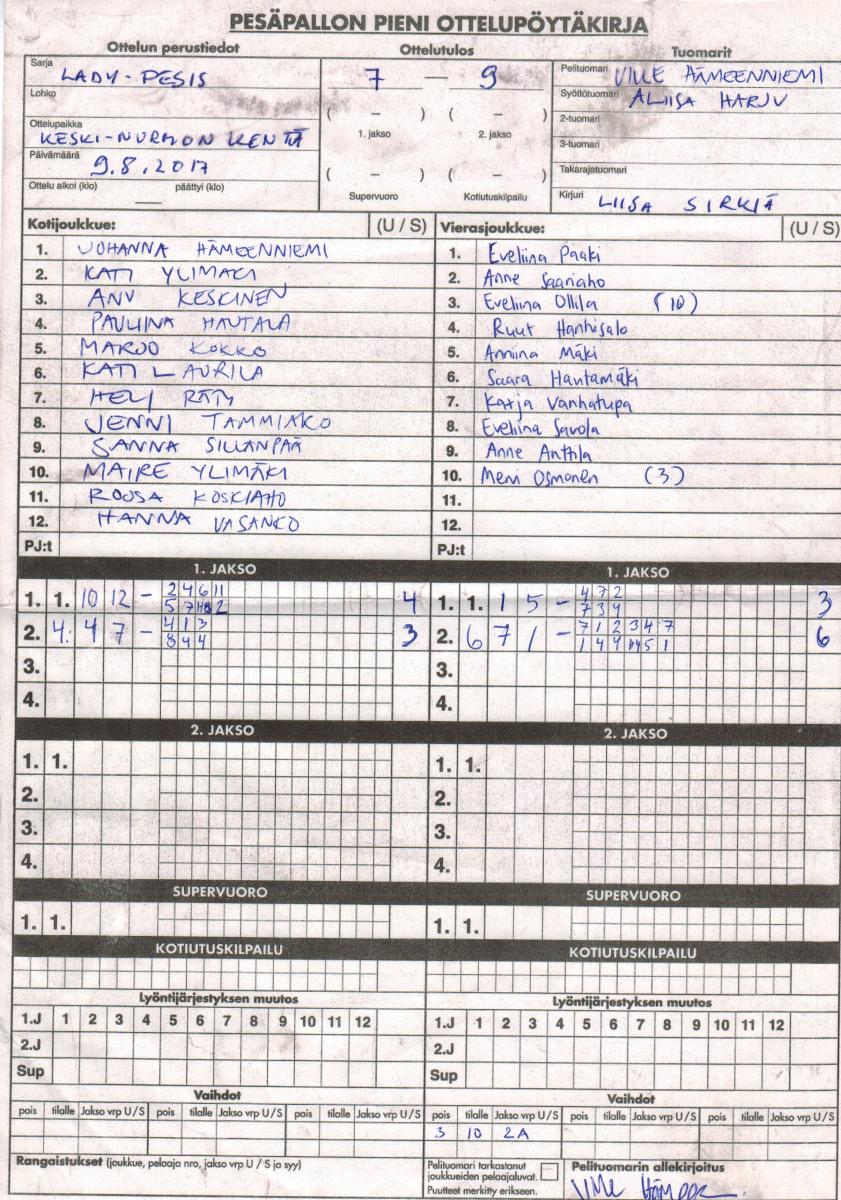 PESÄPALLON PIENI OTTELUPÖYTÄKIRJA
Ottelun perustiedot
Sarja LADY-PESIS
Lohko
Ottelupaikka KESKI-NURMON KENTÄ
Päivämäärä 9.8.2017
Ottelu alkoi (klo) — päättyi (klo)
Ottelutulos
7 — 9
( – ) ( – )
1. jakso 2. jakso
( – ) ( – )
Supervuoro Kotiutuskilpailu
Tuomarit
Pelituomari VILLE HÄMEENNIEMI
Syöttötuomari ALIISA HARJU
2-tuomari
3-tuomari
Takarajatuomari
Kirjuri LIISA SIRKIÄ
Kotijoukkue: (U / S)
1. JOHANNA HÄMEENNIEMI
2. KATI YLIMÄKI
3. ANU KESKINEN
4. PAULIINA HAUTALA
5. MARJO KOKKO
6. KATI LAURILA
7. HELI RÄTY
8. JENNI TAMMIAKO
9. SANNA SILLANPÄÄ
10. MAIRE YLIMÄKI
11. ROOSA KOSKIAHO
12. HANNA VASANKO
PJ:t
Vierasjoukkue: (U / S)
1. Eveliina Paaki
2. Anne Saariaho
3. Eveliina Ollila (10)
4. Ruut Hanhisalo
5. Annina Mäki
6. Saara Hautamäki
7. Katja Vanhatupa
8. Eveliina Savola
9. Anne Anttila
10. Mervi Osmonen (3)
11.
12.
PJ:t
1. JAKSO
1. 1. 10 12 – 2 4 6 11 4
5 7 2
2. 4. 4 7 – 4 1 3 3
8 4 4
3.
4.
1. JAKSO
1. 1. 1 5 – 4 7 2 3
7 3 4
2. 6 7 1 – 7 1 2 3 4 7 6
1 4 4 5 1
3.
4.
2. JAKSO
1. 1.
2.
3.
4.
2. JAKSO
1. 1.
2.
3.
4.
SUPERVUORO
1. 1.
SUPERVUORO
1. 1.
KOTIUTUSKILPAILU
KOTIUTUSKILPAILU
Lyöntijärjestyksen muutos
1.J 1 2 3 4 5 6 7 8 9 10 11 12
2.J
Sup
Lyöntijärjestyksen muutos
1.J 1 2 3 4 5 6 7 8 9 10 11 12
2.J
Sup
Vaihdot
pois tilalle Jakso vrp U/S pois tilalle Jakso vrp U/S pois tilalle Jakso vrp U/S
Vaihdot
pois tilalle Jakso vrp U/S pois tilalle Jakso vrp U/S pois tilalle Jakso vrp U/S
3 10 2A
Rangaistukset (joukkue, pelaaja nro, jakso vrp U / S ja syy)
Pelituomari tarkastanut
joukkueiden pelaajaluvat.
Puutteet merkitty erikseen.
Pelituomarin allekirjoitus
Ville